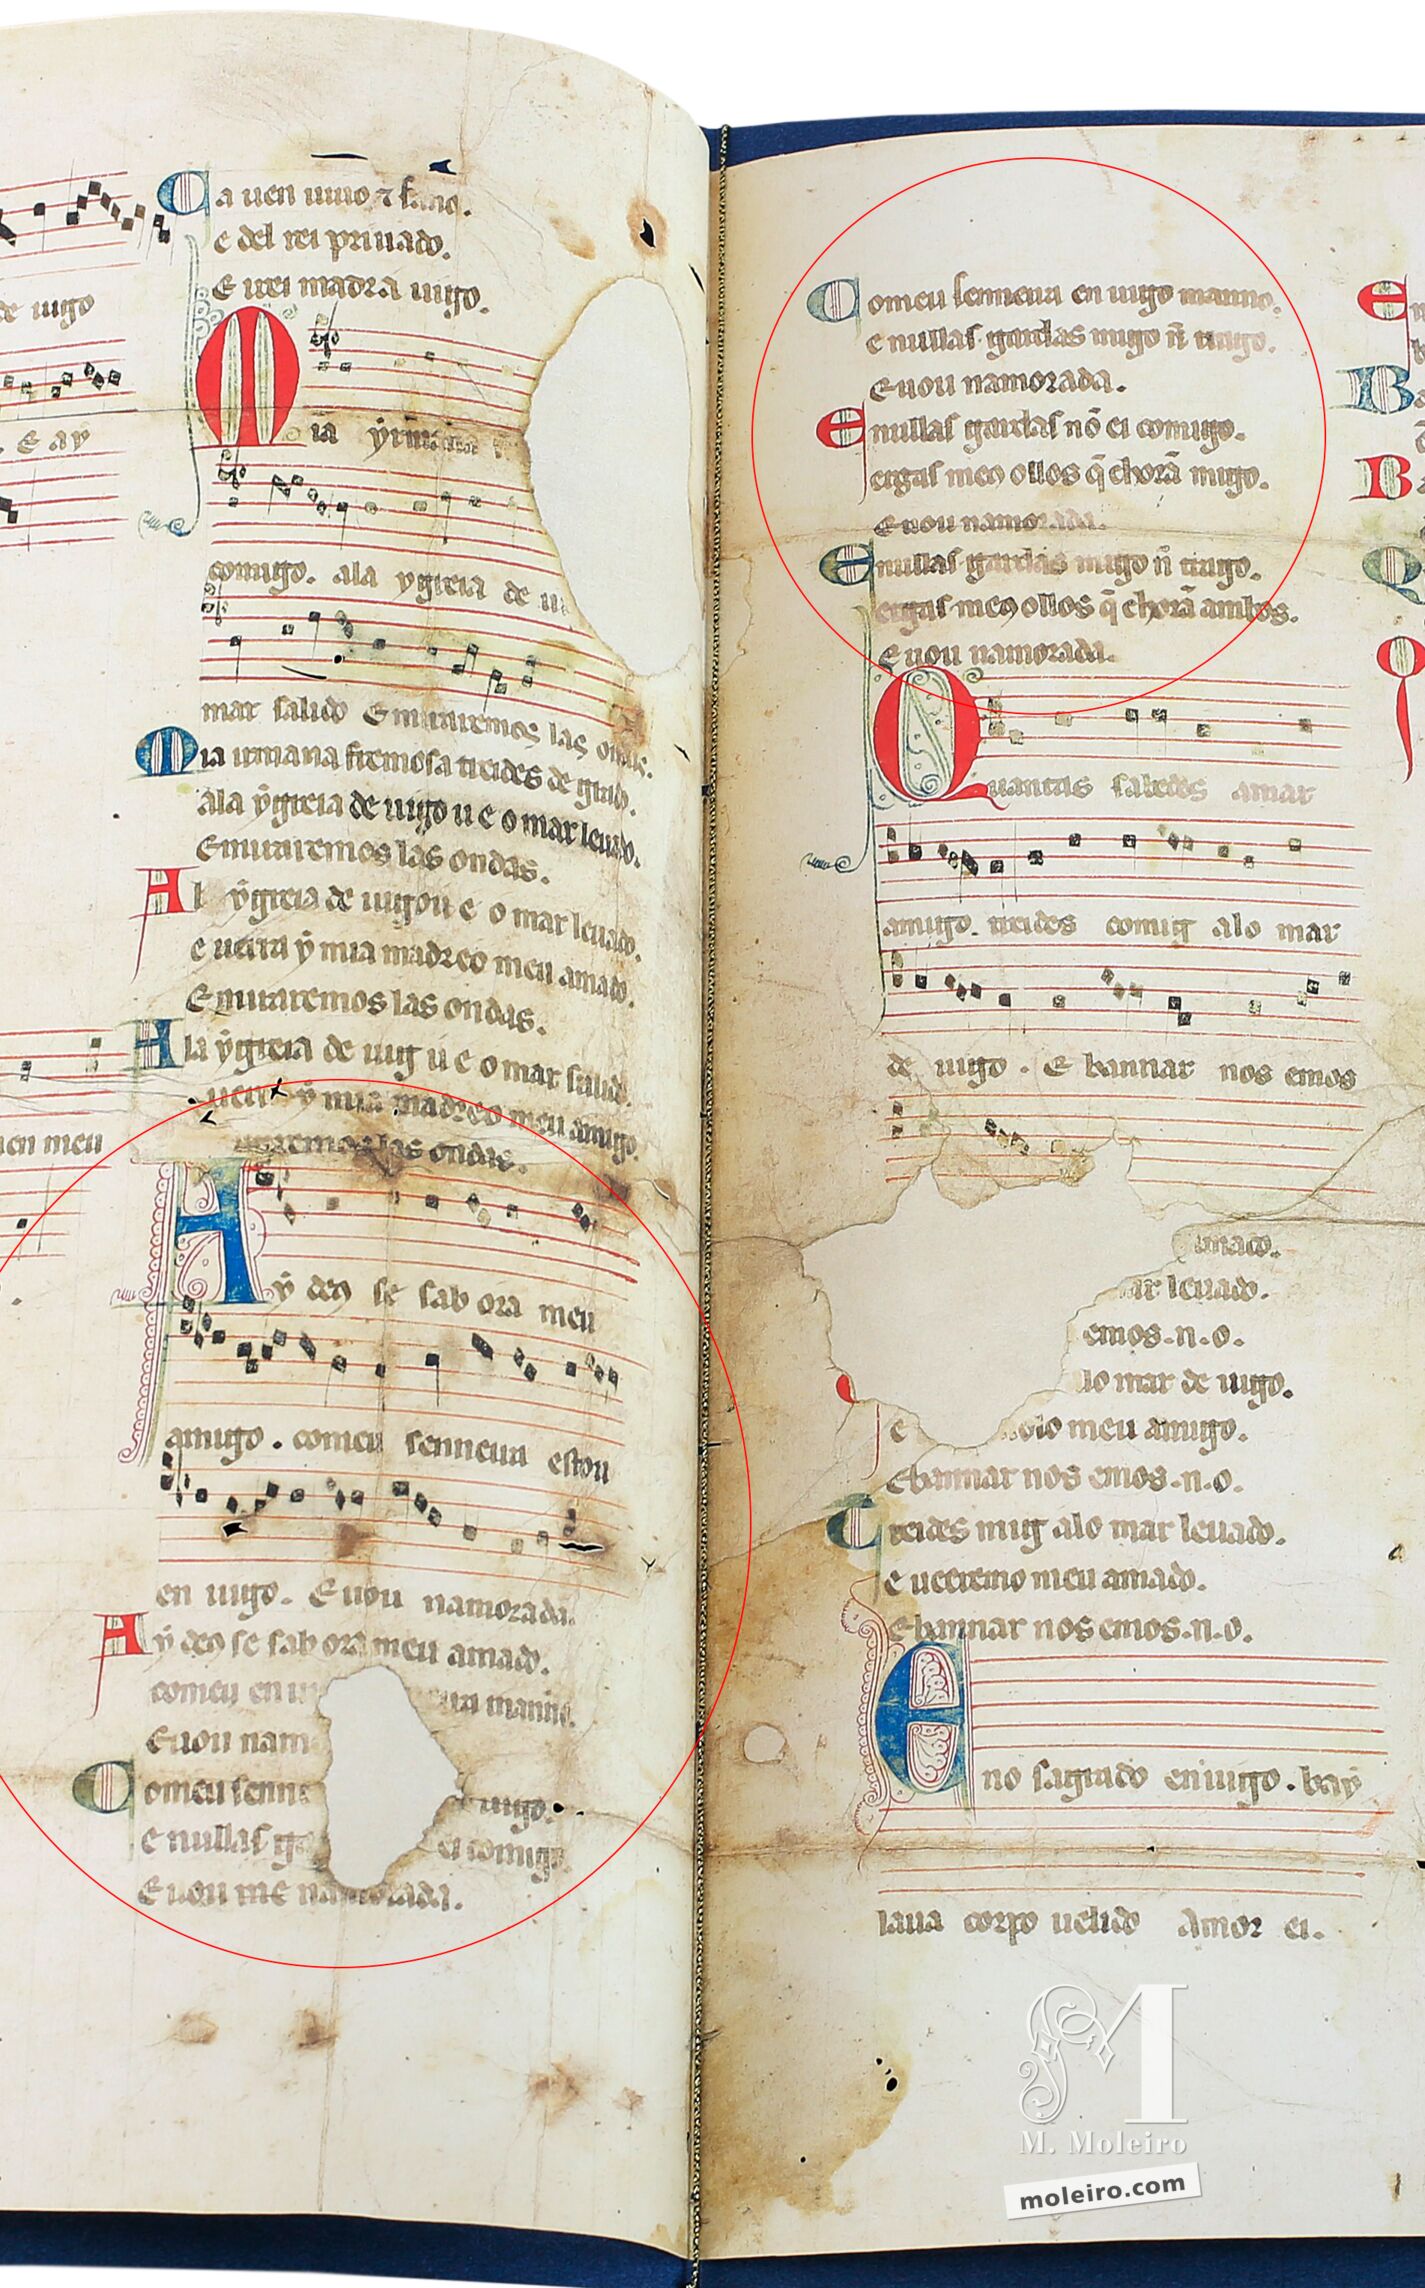 de uigo
. E ay
uen meu
Ca uen uiuo ⁊ sano.
e del rei priuado.
E irei madra uigo.
Mia yrmana
comigo. ala ygreia de
mar salido E miraremos las ondas.
Mia irmana fremosa treides de grado.
ala ygreia de uigo u e o mar leuado.
E miraremos las ondas.
Al ygreia de uigo u e o mar leuado.
e uerra y mia madreo meu amado.
E miraremos las ondas.
Ala ygreia de uig u e o mar salido.
uerra y mia madreo meu amigo.
las ondas.
Ay deꝯ se sab ora meu
amigo. comeu senneira estou
en uigo. E uou namorada.
Ay deꝯ se sab ora meu amado.
comeu en manno.
E uou nam
Comeu senne uigo.
e nullas ga ei comigo.
E uou me namorada.
Comeu senneira en uigo manno.
e nullas gardas migo nõ trago.
E uou namorada.
E nullas gardas nõ ei comigo.
ergas meꝯ ollos q̃ chorã migo.
E uou namorada.
E nullas gardas migo nõ trago.
ergas meꝯ ollos q̃ chorã ambos.
E uou namorada.
Quantas sabedes amar
amigo. treides comig alo mar
de uigo. E bannar nos emos
amado.
ar leuado.
emos.n.o.
lo mar de uigo.
e meu amigo.
E bannar nos emos.n.o.
Treides mig alo mar leuado.
e ueeremo meu amado.
E bannar nos emos.n.o.
Eno sagrado en uigo. bay
laua corpo uelido Amor ei.
M
M. Moleiro
moleiro.com